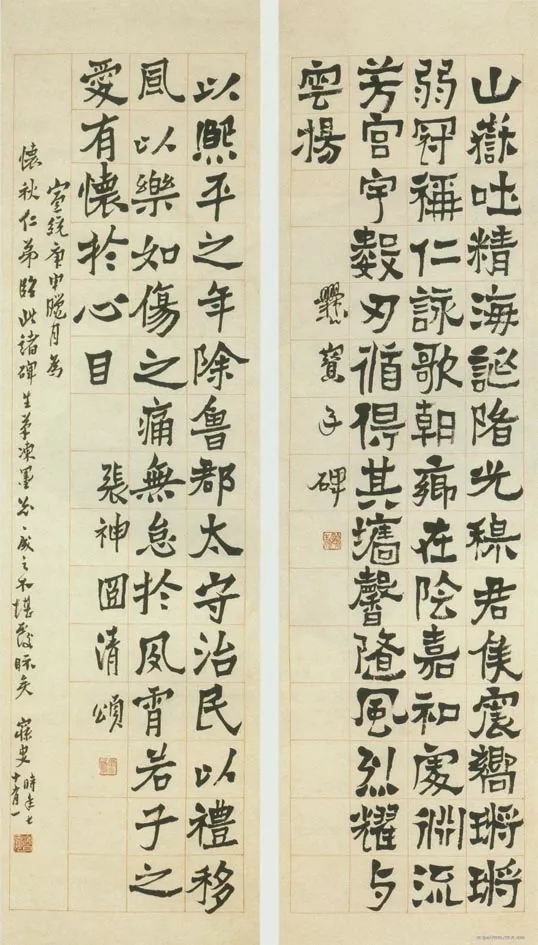 山嶽吐精海誕陼光穆君侯震嚮鏘鏘
弱冠稱仁詠歌朝鄉在陰嘉和處淵流
芳宮宇數刃循得其墻馨隨風烈耀与
雲揚
爨寶子碑
以熙平之年除魯郡太守治民以禮移
風以樂如傷之痛無怠於夙宵若子之
愛有懷於心目
張神囧清頌
宣統庚申臘月為
懷秋仁弟臨此諸碑凍墨成之不堪眎矣 寐叟 時年七
十有一